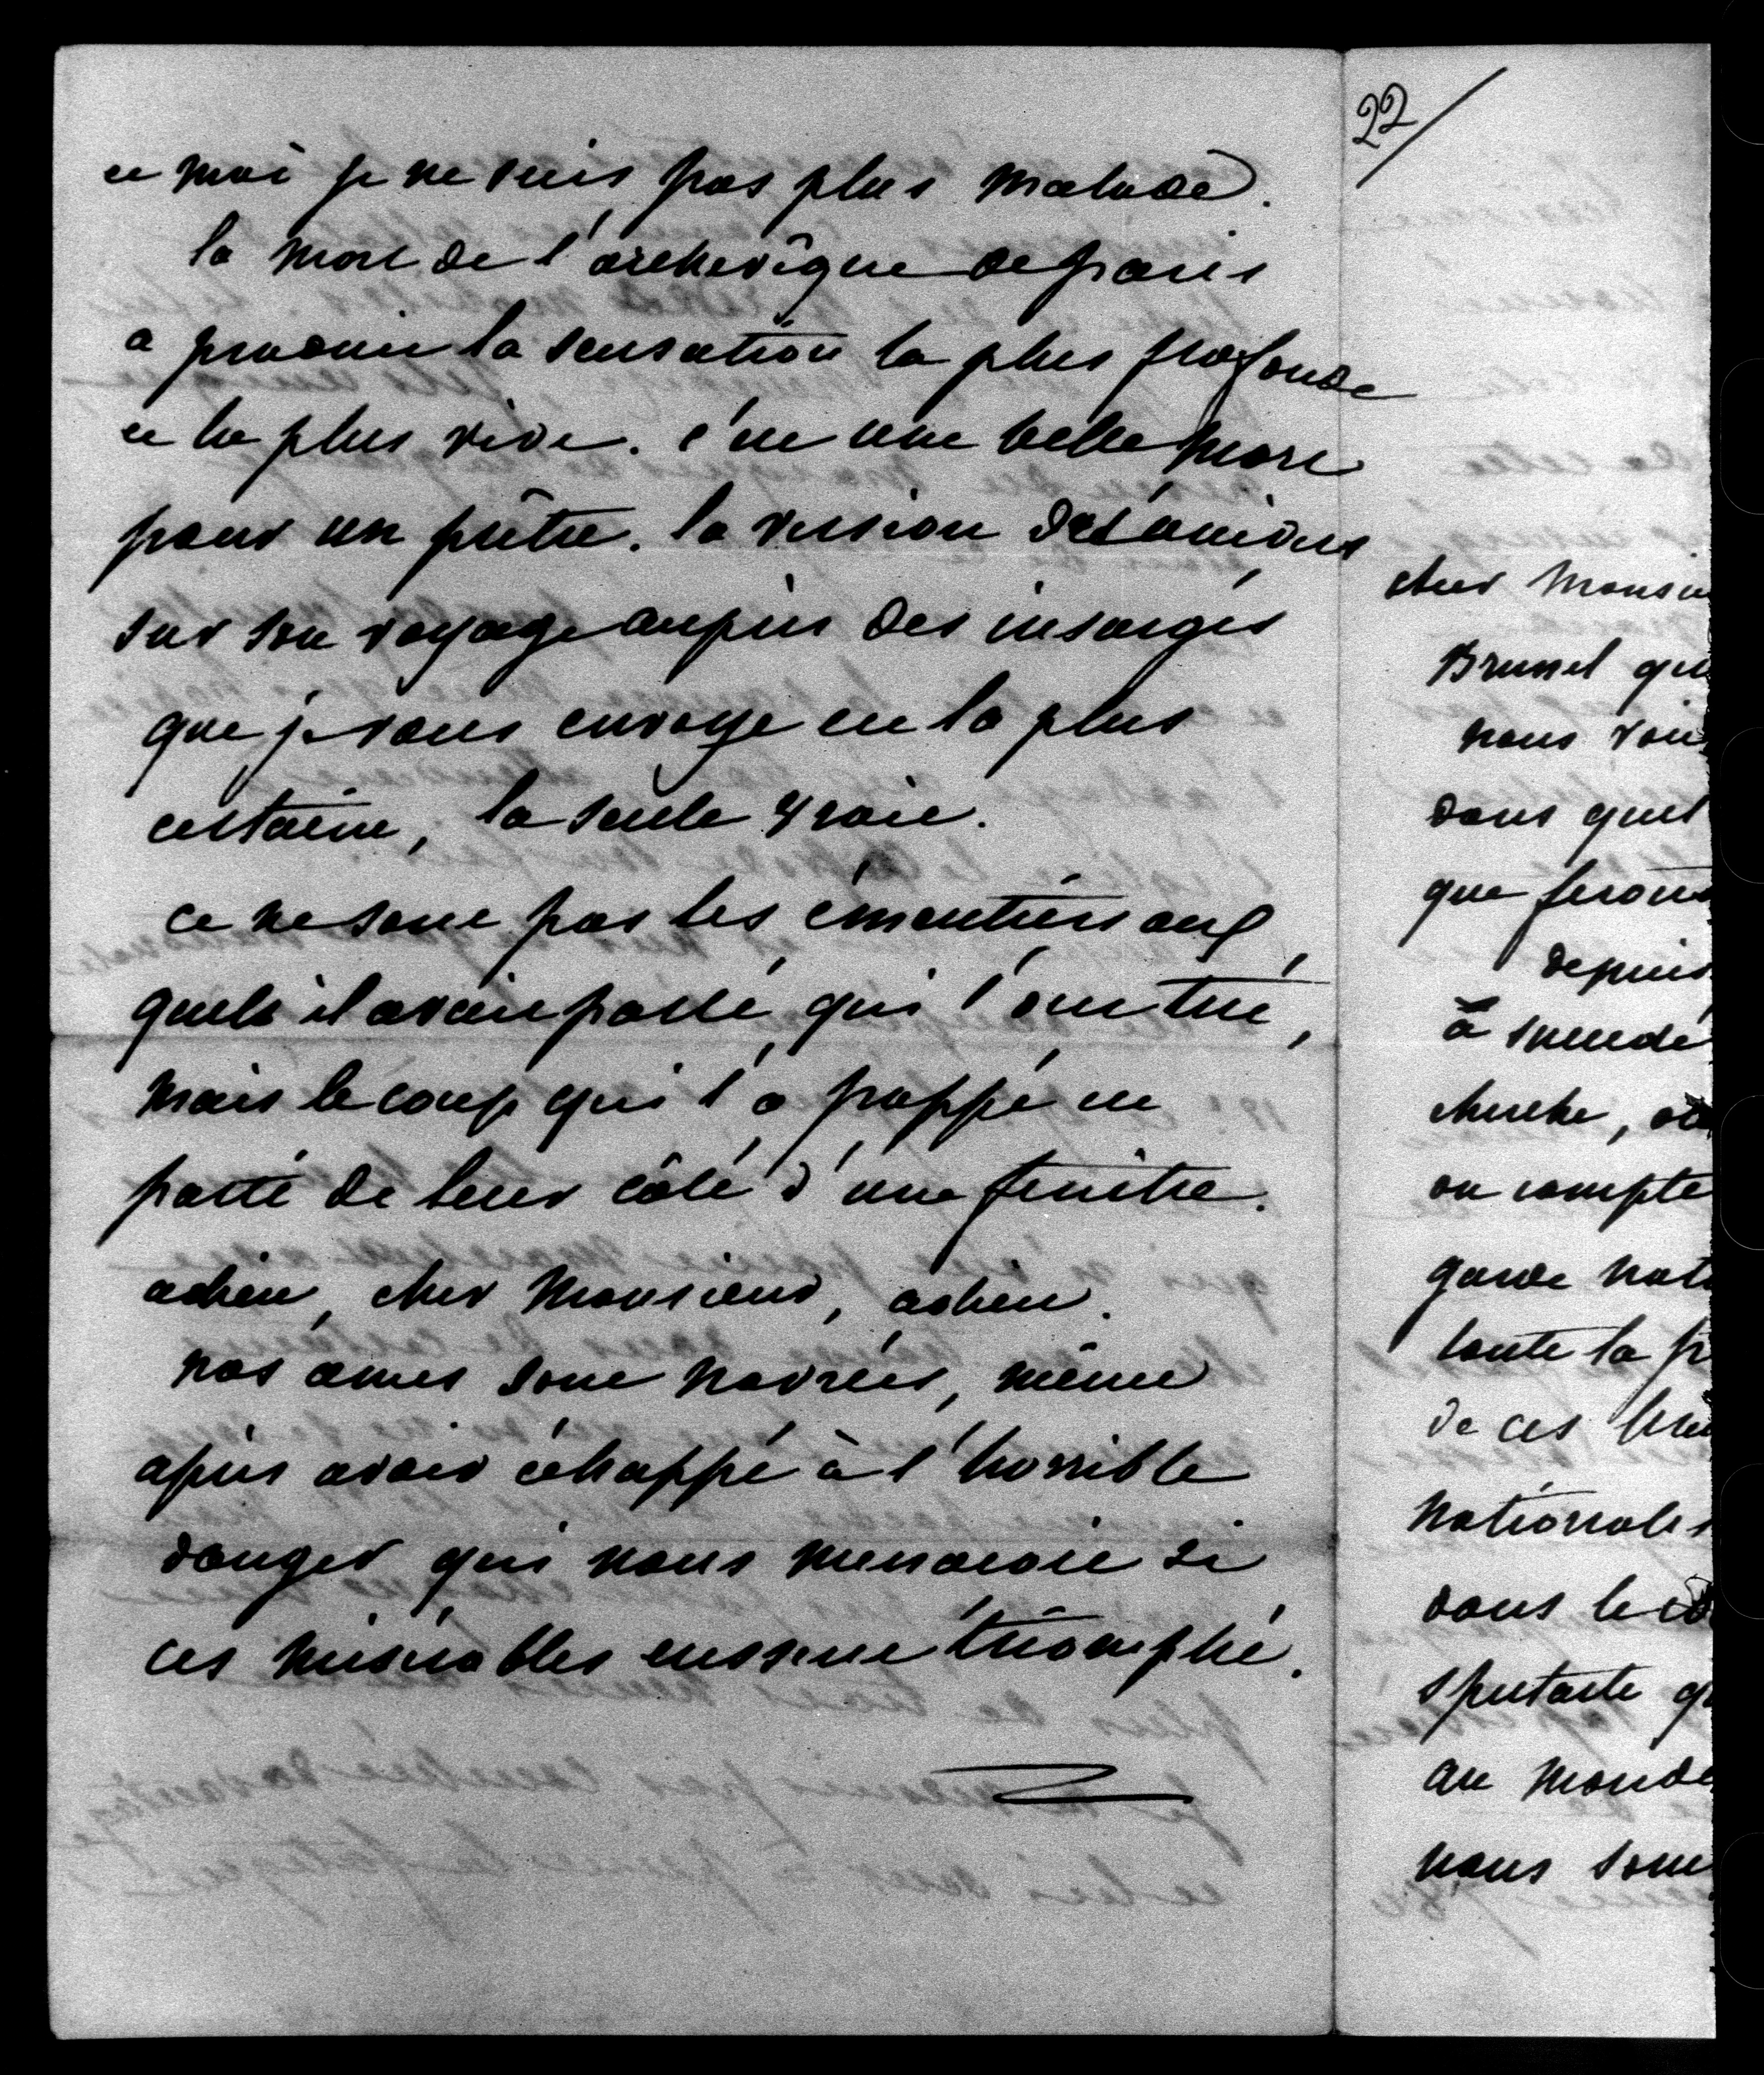 et moi je ne suis pas plus malade.
la mort de l'archevêque de paris
a produit la sensation la plus profonde
et la plus vive. c'est une belle mort
pour un prêtre. la version des
sur son voyage auprès des insurgés
que je vous envoye est la plus
certaine, la seule vraie.
ce ne sont pas les émeutiers aux
quels il avait parlé, qui l'ont tué,
mais le coup qui l'a frappé est
parti de leur côté d'une fenêtre.
adieu, cher Monsieur, adieu.
nos ames sont navrées, même
après avoir échappé à l'horrible
danger qui nous menacoit si
ces misérables eussent triomphé.
22/
cher Monsi
Brunel qu
nous
dans quel
que ferons
depuis
à
cherche,
on compte
garde nat
toute la p
de ces
nationales
dans le
spectacle q
au monde
nous som